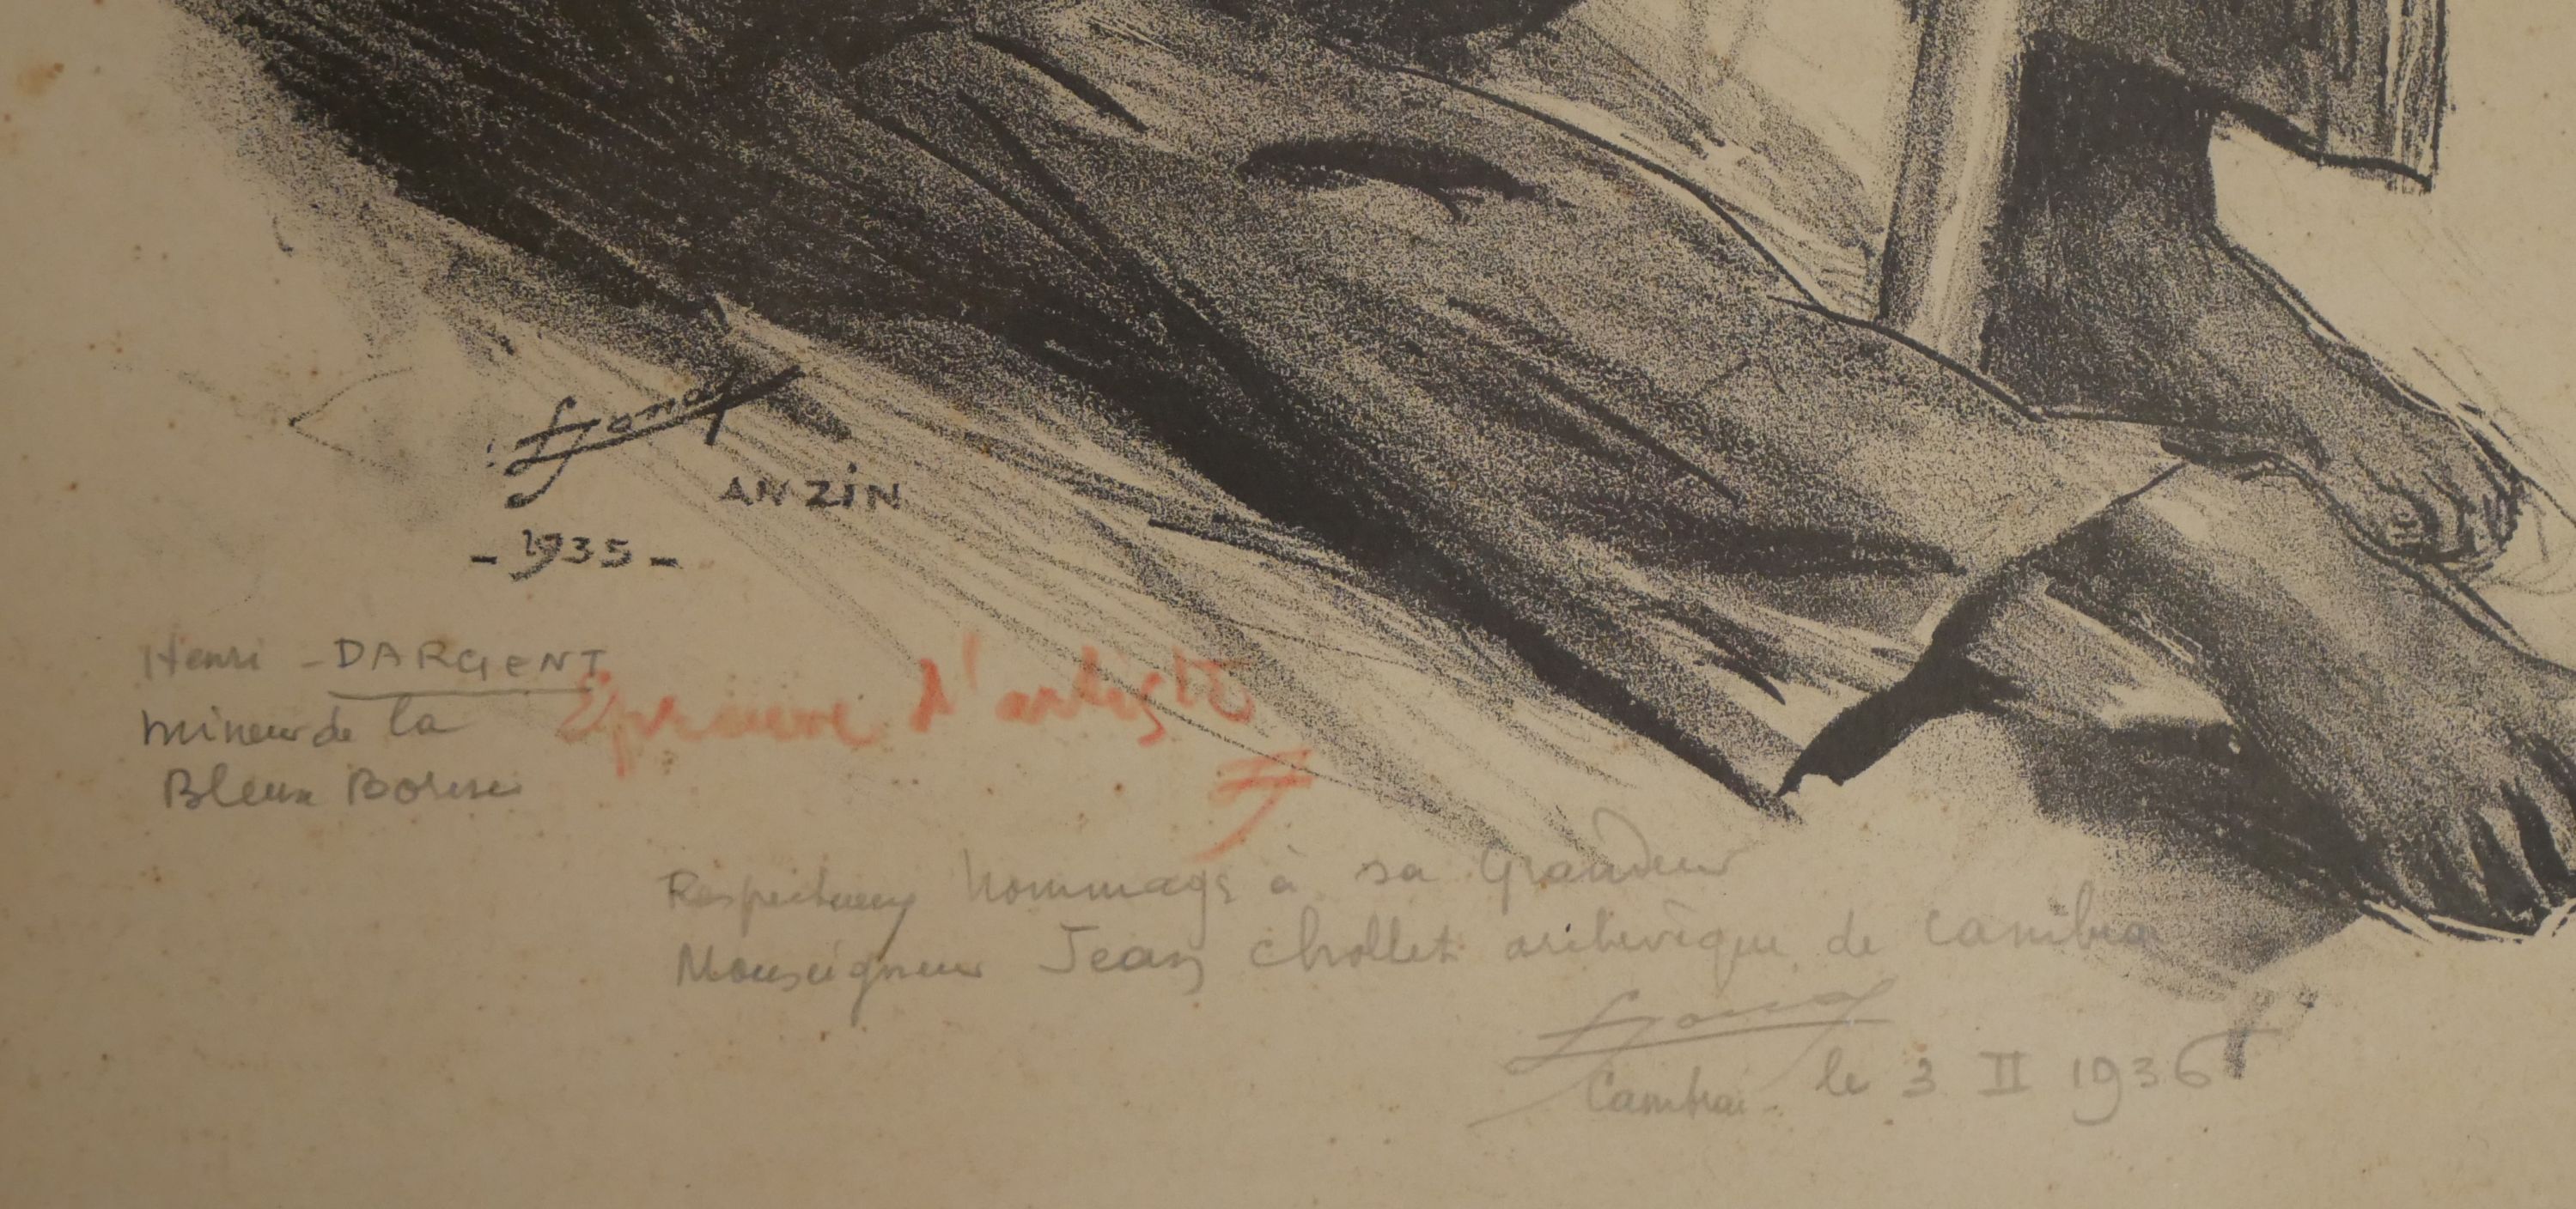 ANZIN
- 1935 -
Henri - DARGENT
mineur de la
Bleuse Borne
Epreuve d'artiste
Respectueux hommage à sa Grandeur
Monseigneur Jean Chollet archevêque de Cambrai
Cambrai le 3 II 1936